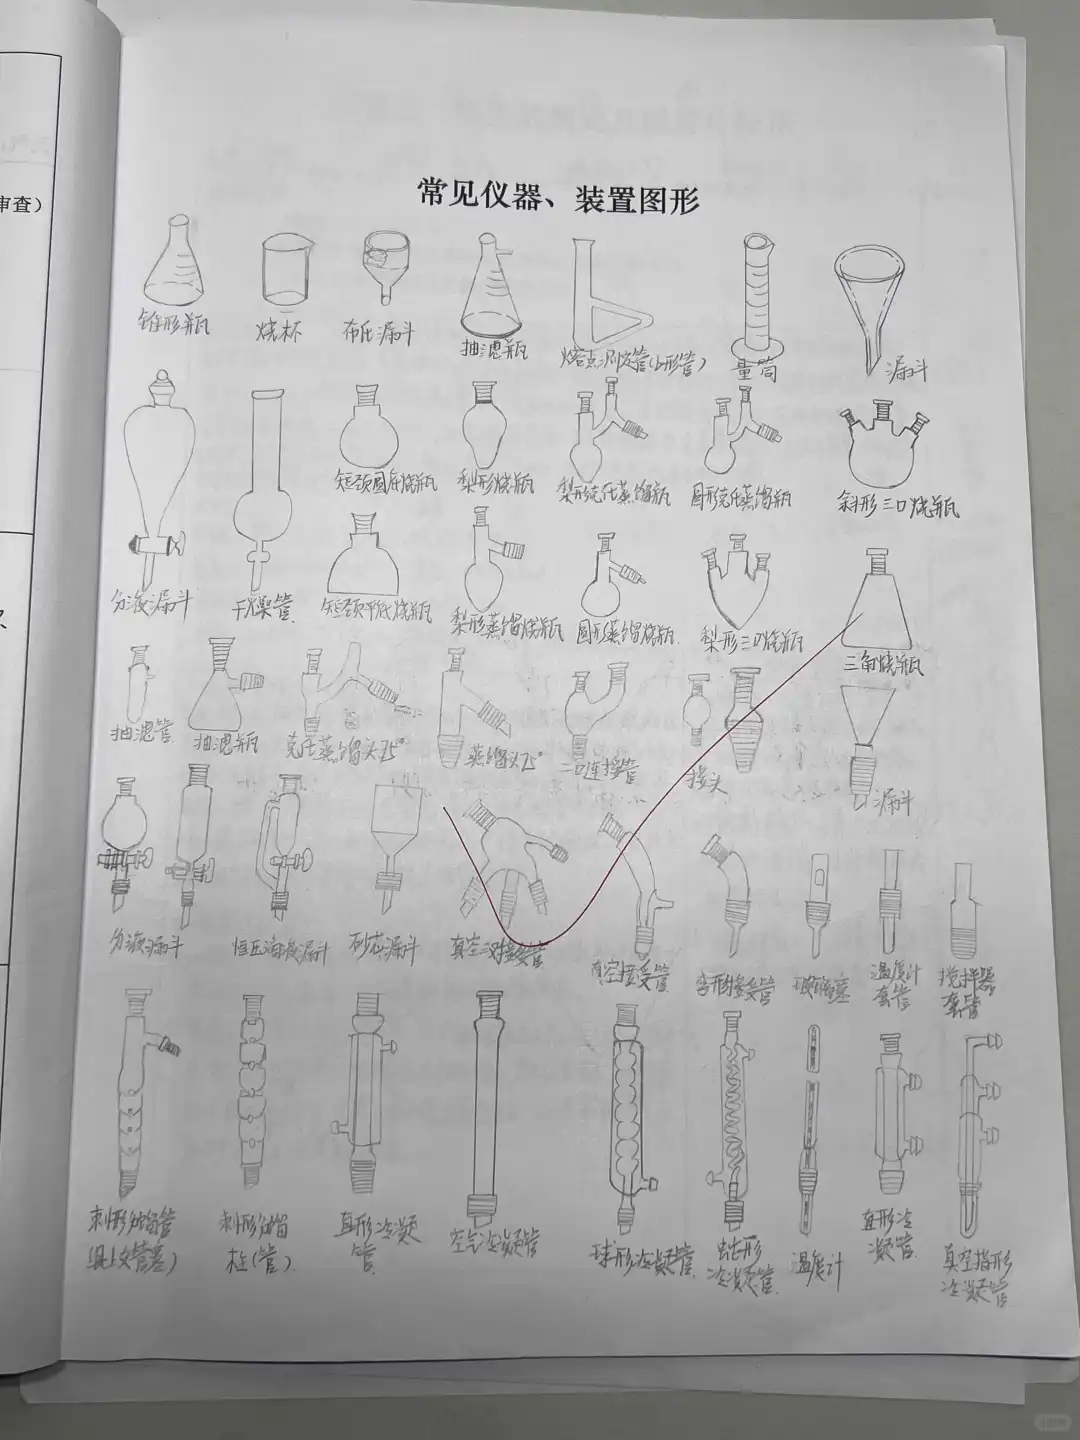 审查）
常见仪器、装置图形
锥形瓶
烧杯
布氏漏斗
抽滤瓶
熔点测定管(b形管)
量筒
漏斗
短颈圆底烧瓶
梨形烧瓶
梨形克氏蒸馏瓶
圆形克氏蒸馏瓶
斜形三口烧瓶
分液漏斗
干燥管
短颈平底烧瓶
梨形蒸馏烧瓶
圆形蒸馏烧瓶
梨形三口烧瓶
三角烧瓶
抽滤管
抽滤瓶
克氏蒸馏头75°
蒸馏头75°
二口连接管
接头
漏斗
分液漏斗
恒压滴液漏斗
砂芯漏斗
真空三叉接受管
真空接受管
弯形接受管
玻璃塞
温度计
套管
搅拌器
套管
刺形分馏管
刺形分馏
柱(管)
直形冷凝
管
空气冷凝管
球形冷凝管
蛇形
冷凝管
温度计
直形冷
凝管
真空指形
冷凝管